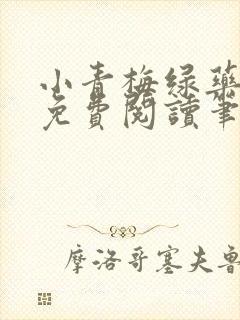 小青梅绿药
免費閱讀筆
摩洛哥塞夫魯